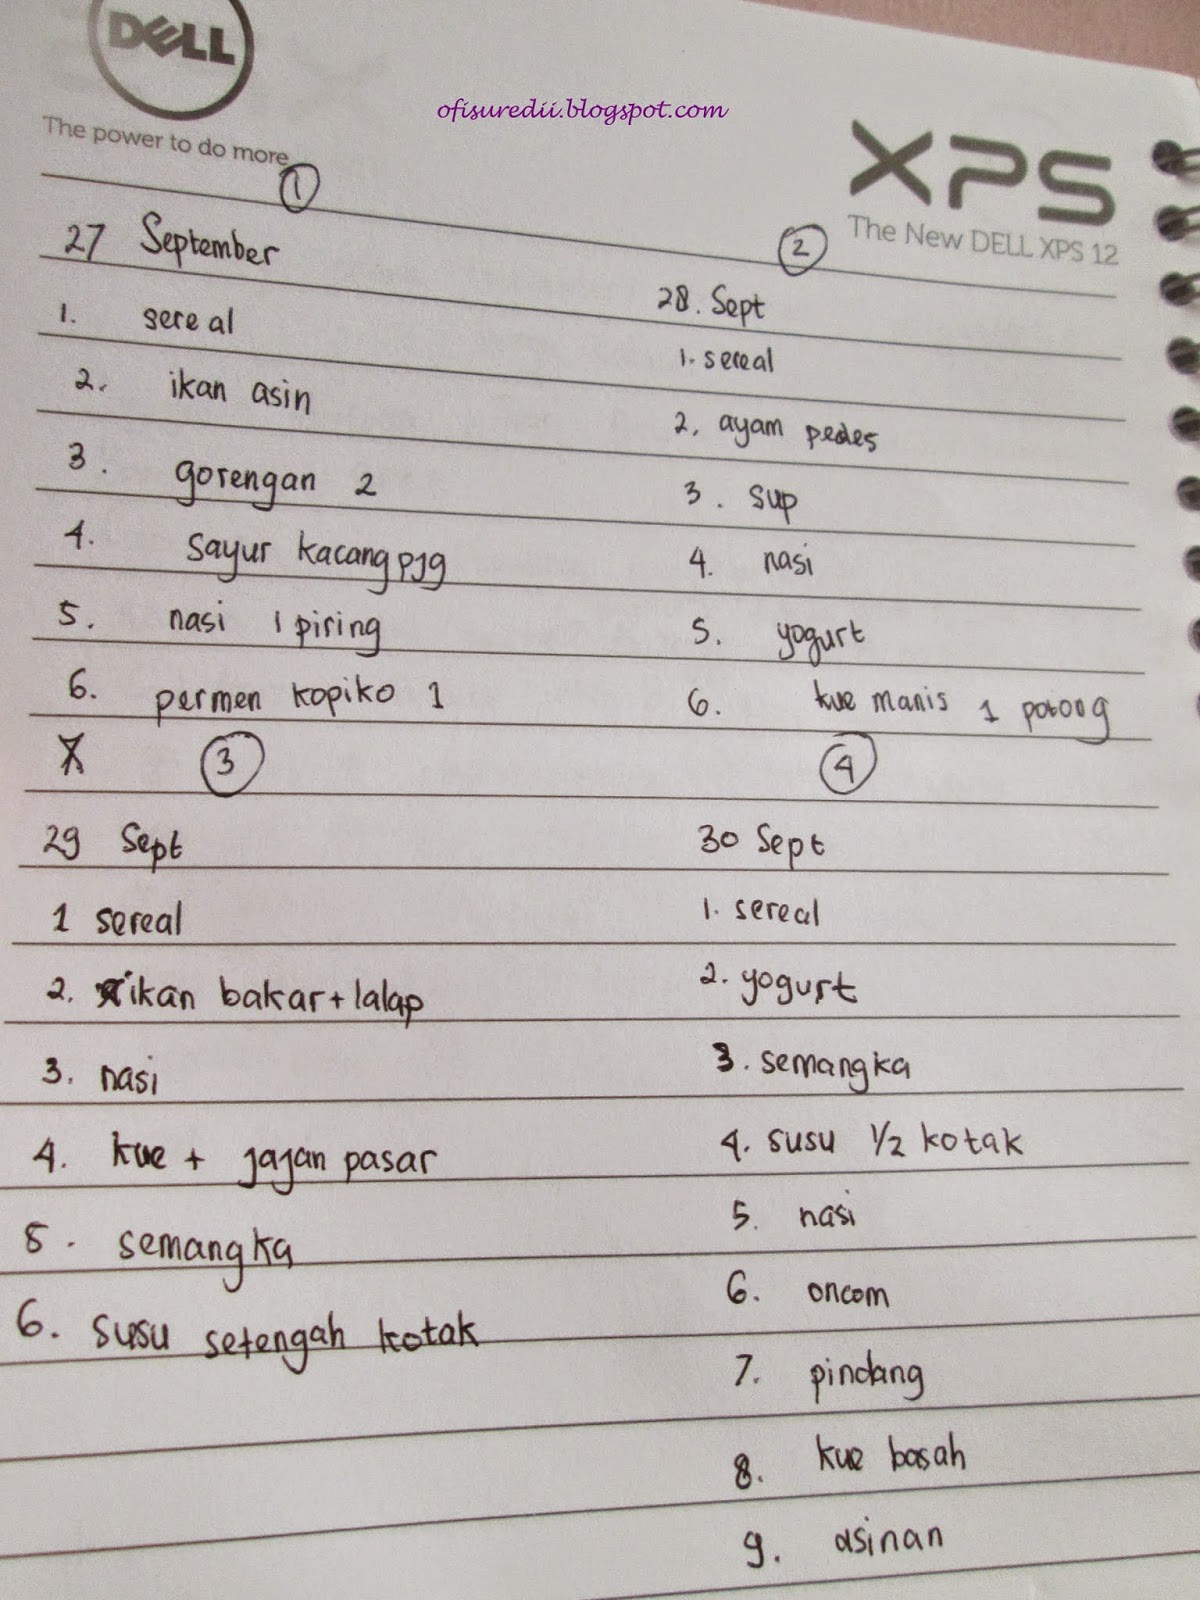 DELL
The power to do more
ofisuredii.blogspot.com
XPS
The New DELL XPS 12
1
27 September
1. sereal
2. ikan asin
3. gorengan 2
4. sayur kacang pjg
5. nasi 1 piring
6. permen kopiko 1
2
28. Sept
1. sereal
2. ayam pedes
3. sup
4. nasi
5. yogurt
6. kue manis 1 potong
3
29 Sept
1 sereal
2. ikan bakar + lalap
3. nasi
4. kue + jajan pasar
5. semangka
6. susu setengah kotak
4
30 Sept
1. sereal
2. yogurt
3. semangka
4. susu 1/2 kotak
5. nasi
6. oncom
7. pindang
8. kue basah
9. asinan